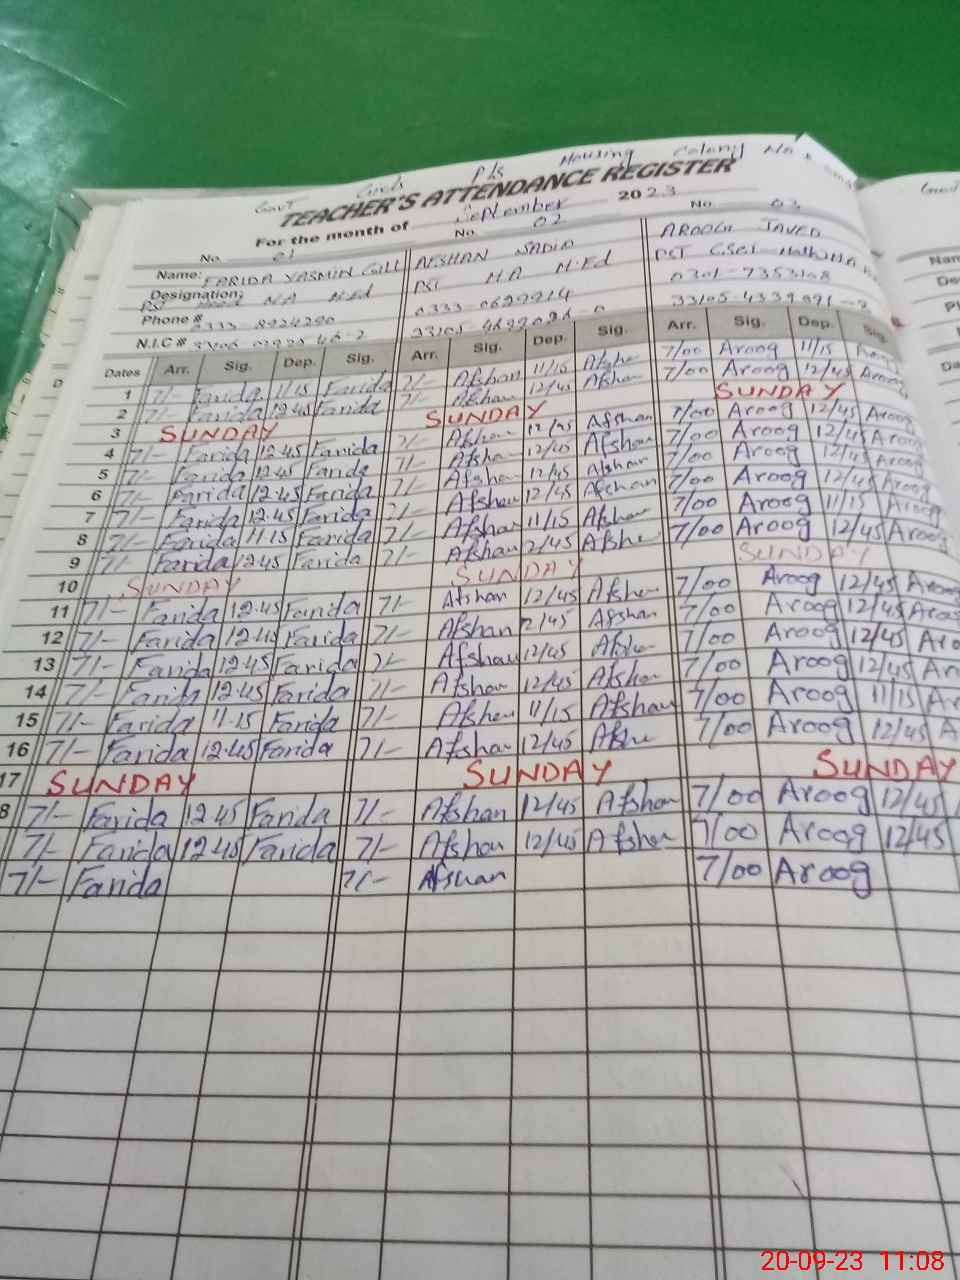 Govt Girls P/s Housing Colony No
TEACHER'S ATTENDANCE REGISTER
For the month of September 2023
No. 01 No. 02 No. 03
Name: FARIDA YASMIN GILL AFSHAN SADIQ AROOGH JAVED
Designation: PST MA M.Ed PST M.A M.Ed PST
Phone #
N.I.C #
Dates Arr. Sig. Dep. Sig. Arr. Sig. Dep. Sig. Arr. Sig. Dep. Sig.
1 7/- Farida 11.15 Farida 7/- Afshan 11/15 Afshan 7/00 Aroog 11/15 Aroog
2 7/- Farida 12.45 Farida 7/- Afshan 12/45 Afshan 7/00 Aroog 12/45 Aroog
3 SUNDAY SUNDAY SUNDAY
4 7/- Farida 12.45 Farida 7/- Afshan 12/45 Afshan 7/00 Aroog 12/45 Aroog
5 7/- Farida 12.45 Farida 7/- Afshan 12/45 Afshan 7/00 Aroog 12/45 Aroog
6 7/- Farida 12.45 Farida 7/- Afshan 12/45 Afshan 7/00 Aroog 12/45 Aroog
7 7/- Farida 12.45 Farida 7/- Afshan 12/45 Afshan 7/00 Aroog 12/45 Aroog
8 7/- Farida 11.15 Farida 7/- Afshan 11/15 Afshan 7/00 Aroog 11/15 Aroog
9 7/- Farida 12.45 Farida 7/- Afshan 2/45 Afshe 7/00 Aroog 12/45 Aroog
10 SUNDAY SUNDAY SUNDAY
11 7/- Farida 12.45 Farida 7/- Afshan 12/45 Afshan 7/00 Aroog 12/45 Aroog
12 7/- Farida 12.45 Farida 7/- Afshan 2/45 Afshan 7/00 Aroog 12/45 Aroo
13 7/- Farida 12.45 Farida 7/- Afshan 12/45 Afshan 7/00 Aroog 12/45 Aro
14 7/- Farida 12.45 Farida 7/- Afshan 12/45 Afshan 7/00 Aroog 12/45 Ar
15 7/- Farida 11.15 Farida 7/- Afshan 11/15 Afshan 7/00 Aroog 11/15 Ar
16 7/- Farida 12.45 Farida 7/- Afshan 12/45 Afshe 7/00 Aroog 12/45 A
17 SUNDAY SUNDAY SUNDAY
8 7/- Farida 12.45 Farida 7/- Afshan 12/45 Afshan 7/00 Aroog 12/45
7/- Farida 12.45 Farida 7/- Afshan 12/45 Afshan 7/00 Aroog 12/45
7/- Farida 7/- Afshan 7/00 Aroog
20-09-23 11:08